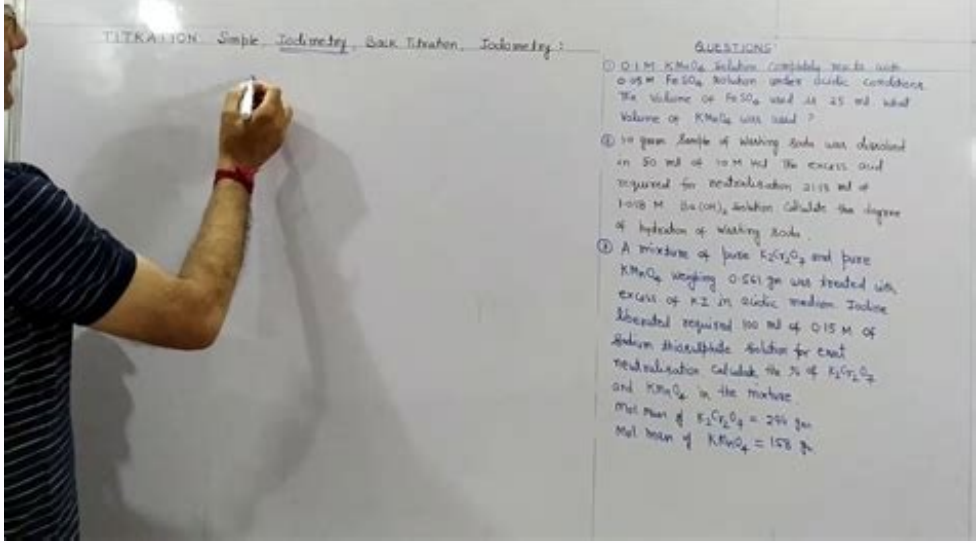 TITRATION Simple Iodimetry, Back Titration, Iodometry :
QUESTIONS
① 0.1 M KMnO4 solution completely reacts with
0.05 M FeSO4 solution under acidic conditions
The volume of FeSO4 used is 25 ml what
volume of KMnO4 was used ?
② 10 gram sample of washing soda was dissolved
in 50 ml of 10 M HCl The excess acid
required for neutralisation ml of
M Ba(OH)2 solution Calculate the degree
of hydration of washing soda.
③ A mixture of pure K2Cr2O7 and pure
KMnO4 weighing 0.561 gm was treated with
excess of KI in acidic medium Iodine
liberated required 100 ml of 0.15 M of
Sodium thiosulphate solution for exact
neutralisation Calculate the % of K2Cr2O7
and KMnO4 in the mixture.
Mol Mass of K2Cr2O7 = 294 gm
Mol mass of KMnO4 = 158 gm